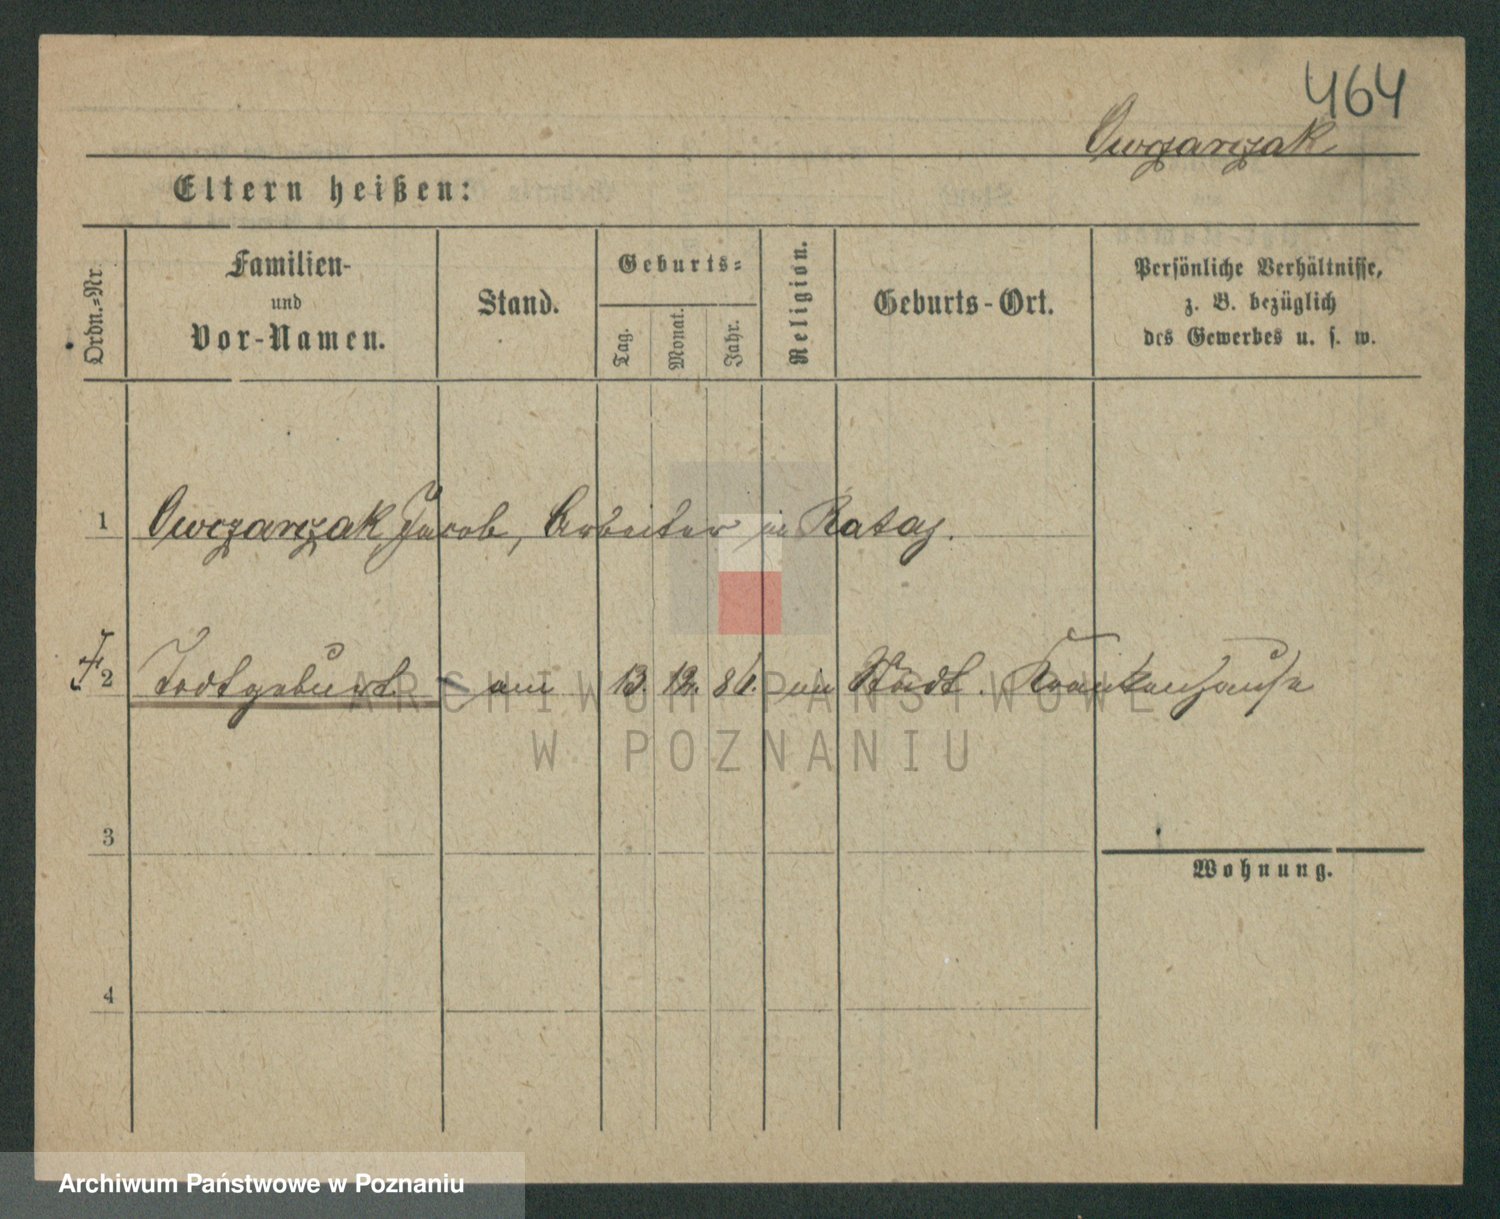 464
Owczarzak
Eltern heißen:
Ordn.-Nr.
Familien-
und
Vor-Namen.
Stand.
Geburts-
Tag.
Monat.
Jahr.
Religion.
Geburts-Ort.
Persönliche Verhältnisse,
z. B. bezüglich
des Gewerbes u. s. w.
1 Owczarzak Jacob, Arbeiter in Rataj.
2 Todtgeburt - am 13. 12. 86. im Städt. Krankenhause
3
Wohnung.
4
ARCHIWUM PAŃSTWOWE
W POZNANIU
Archiwum Państwowe w Poznaniu